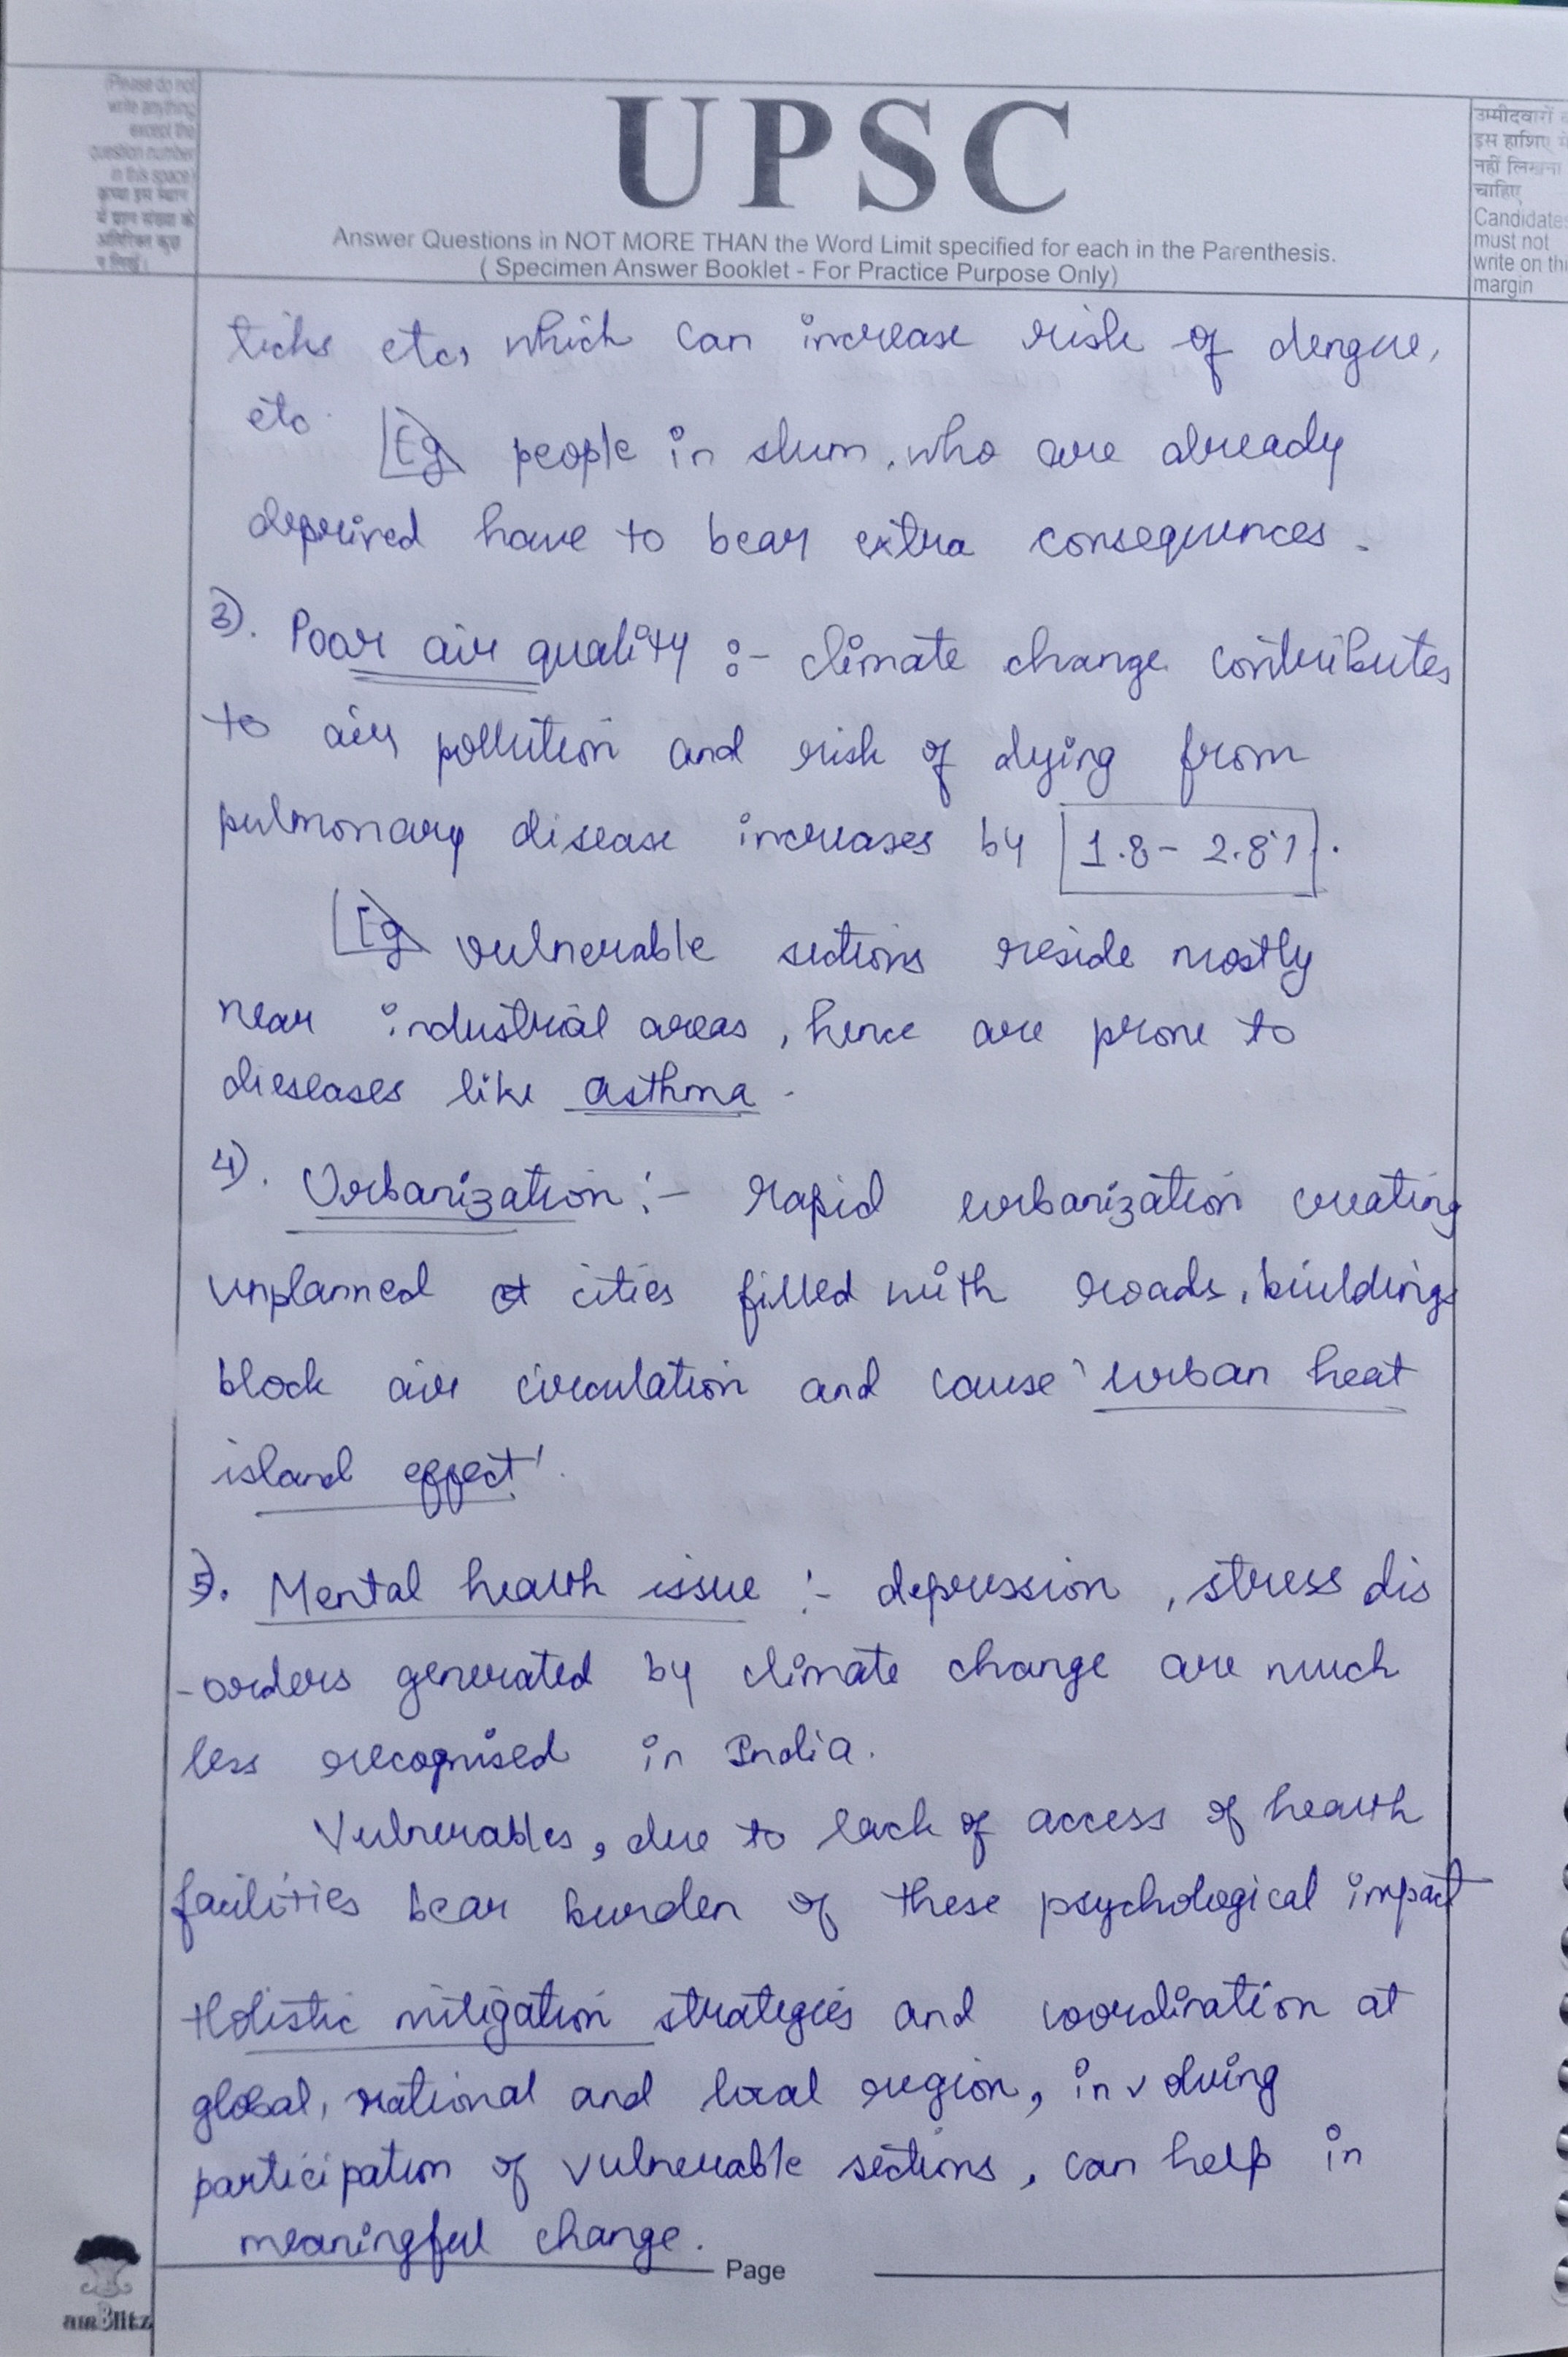 (Please do not
write anything
except the
question number
in this space)
कृपया इस स्थान
में प्रश्न संख्या के
अतिरिक्त कुछ
न लिखें।
UPSC
Answer Questions in NOT MORE THAN the Word Limit specified for each in the Parenthesis.
( Specimen Answer Booklet - For Practice Purpose Only)
उम्मीदवारों
इस हाशिए
नहीं लिखना
चाहिए
Candidates
must not
write on this
margin
ticks etc, which can increase risk of dengue,
etc. Eg people in slum, who are already
deprived have to bear extra consequences.
3). Poor air quality :- climate change contributes
to air pollution and risk of dying from
pulmonary disease increases by 1.8 - 2.8%.
Eg vulnerable sections reside mostly
near industrial areas, hence are prone to
dieseases like asthma.
4). Urbanization :- rapid urbanization creating
unplanned cities filled with roads, buildings
block air circulation and cause 'urban heat
island effect'.
5). Mental health issue :- depression, stress dis
-orders generated by climate change are much
less recognised in India.
Vulnerables, due to lack of access of health
facilities bear burden of these psychological impact
Holistic mitigation strategies and coordination at
global, national and local region, involving
participation of vulnerable sections, can help in
meaningful change.
Page